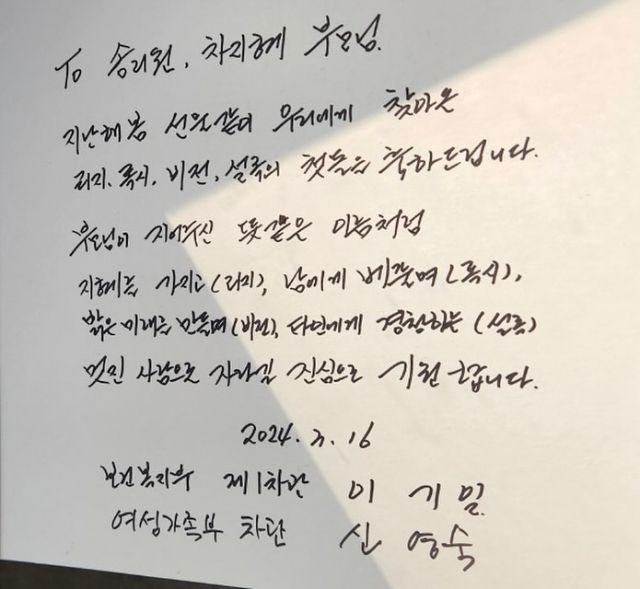 To 송리원, 차지혜 부모님.
지난해 봄 선물같이 우리에게 찾아온
리지, 록시, 비전, 설록의 첫돌을 축하드립니다.
부모님이 지어주신 뜻깊은 이름처럼
지혜를 가지고(리지), 남에게 베풀며(록시),
밝은 미래를 만들며(비전), 타인에게 경청하는 (설록)
멋진 사람으로 자라길 진심으로 기원드립니다.
2024. 7. 16
보건복지부 제1차관 이 기 일
여성가족부 차관 신 영 숙